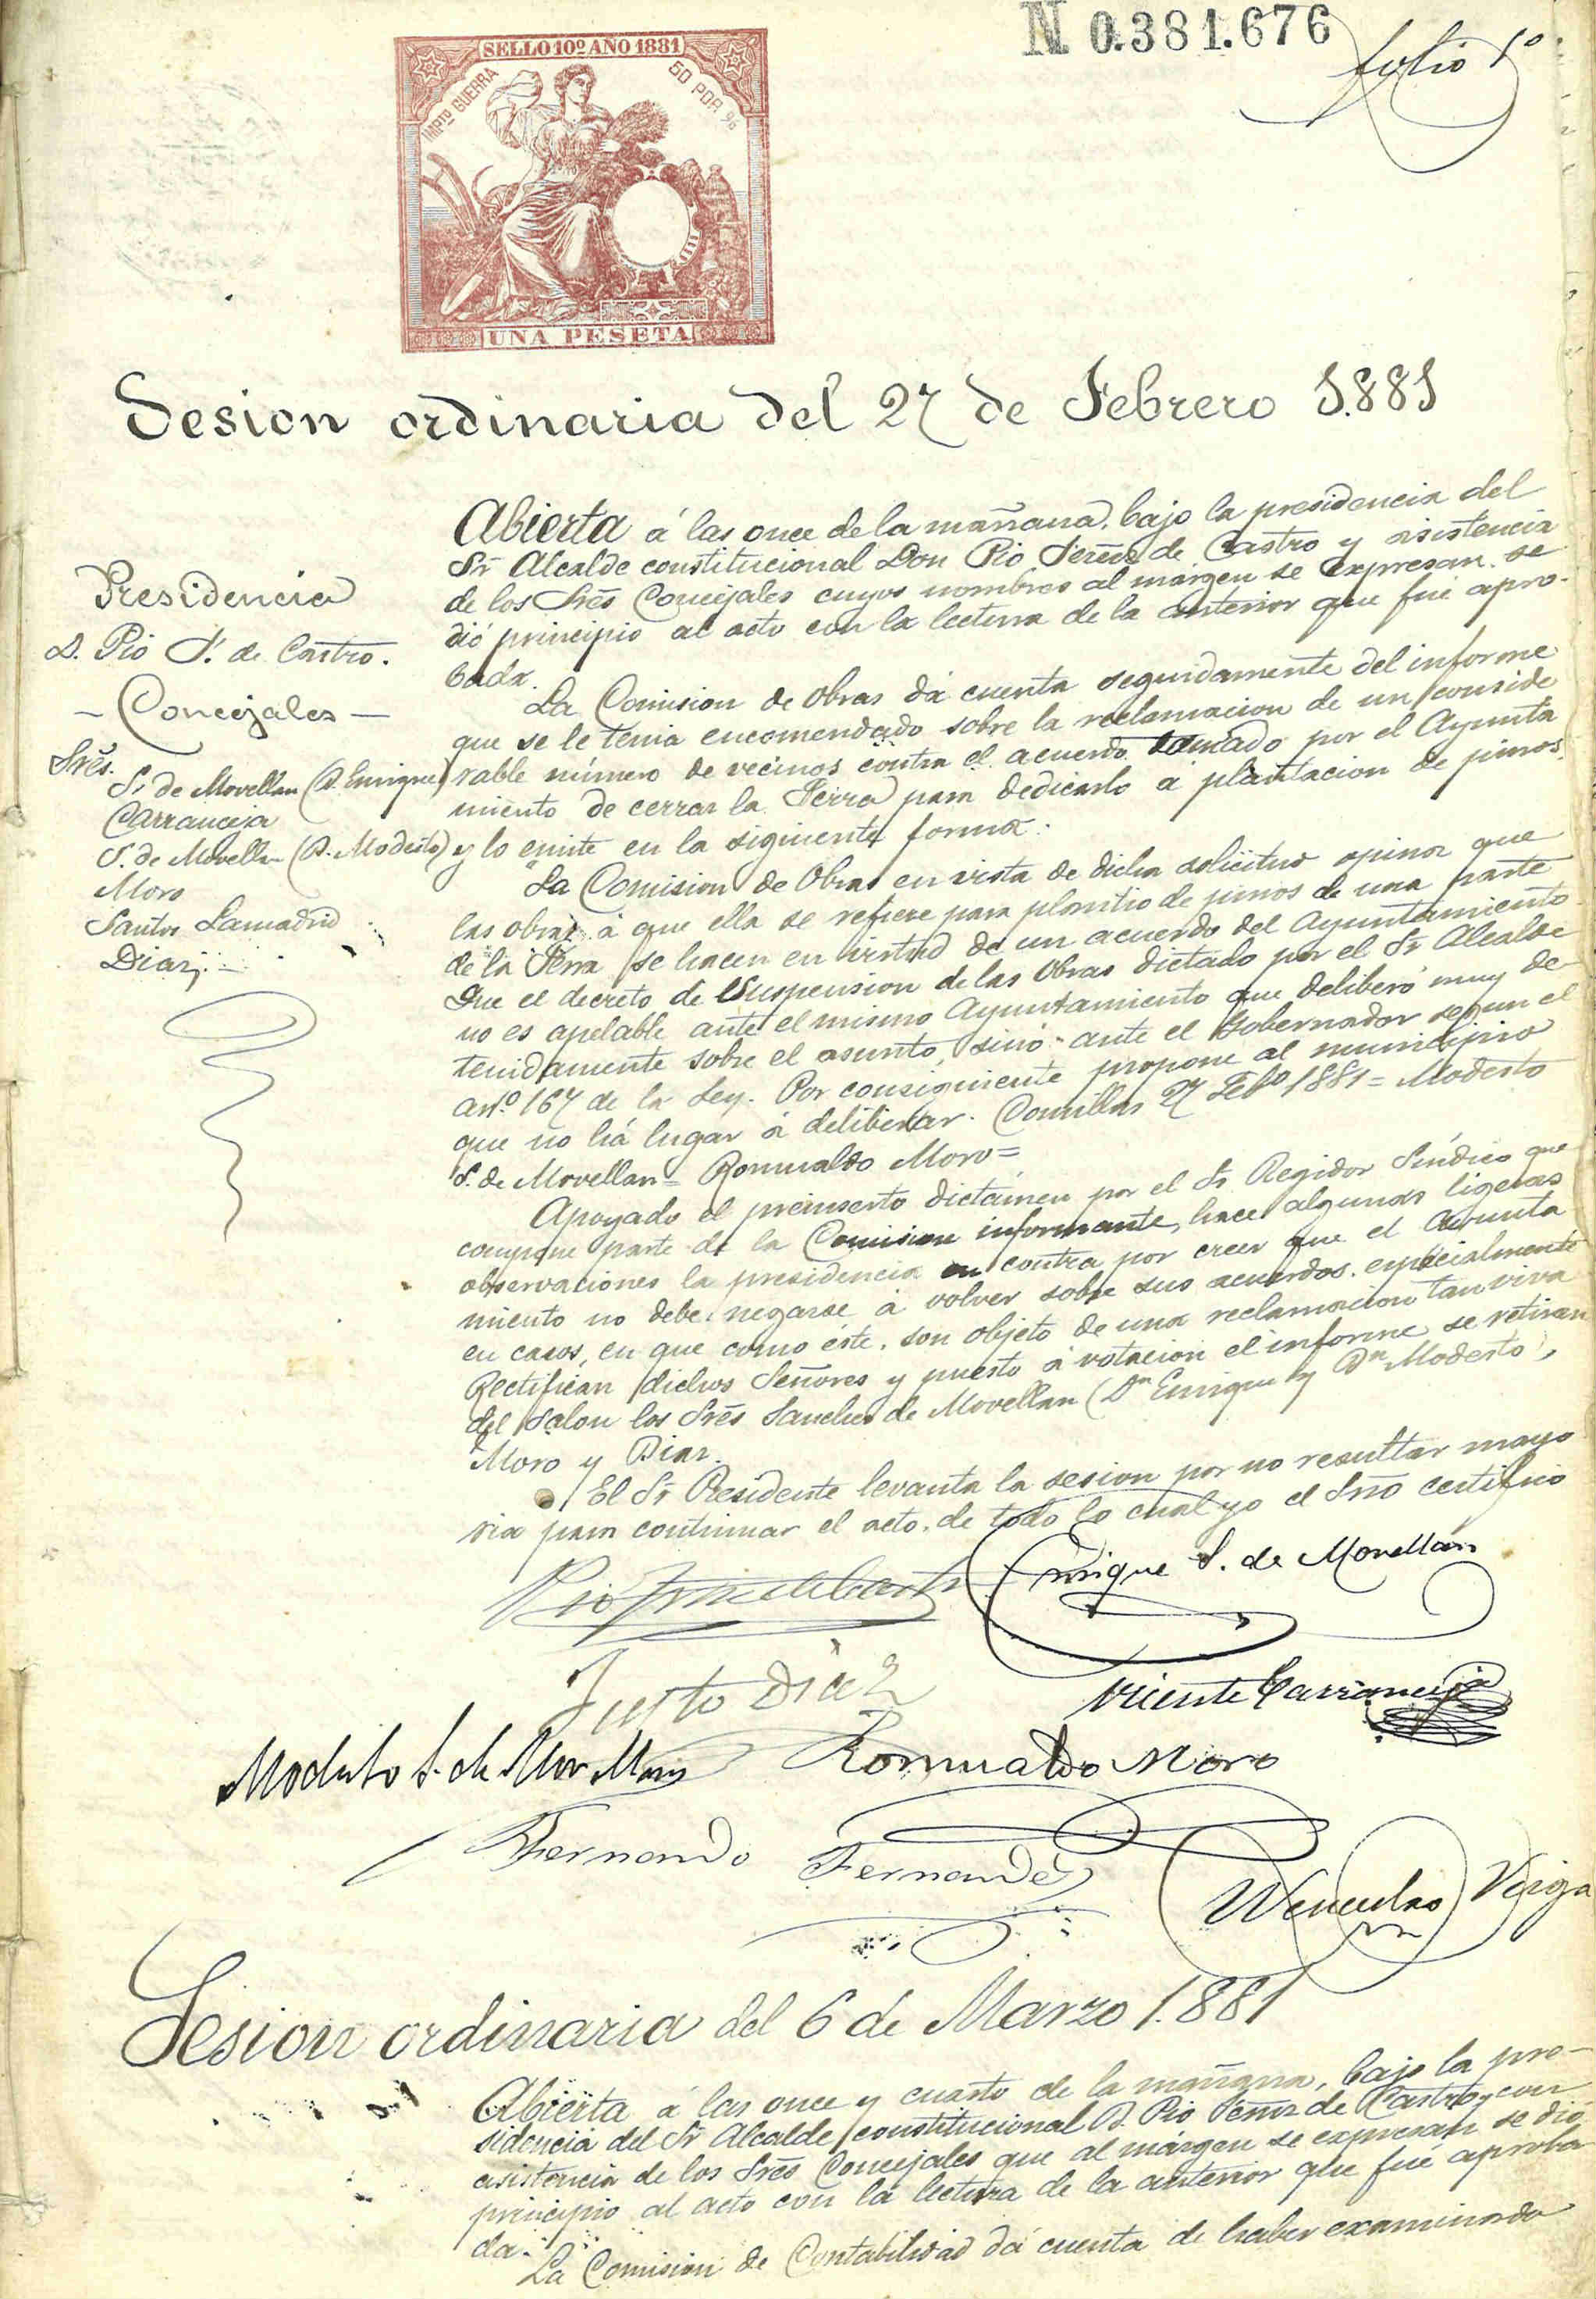 N 0.381.676
folio 1º
SELLO 10º AÑO 1881
IMPTO GUERRA
50 POR %
UNA PESETA
Sesion ordinaria del 27 de Febrero 1.881
Presidencia
D. Pio J. de Castro.
- Concejales -
Srẽs.
S. de Movellan (D. Enrique)
Carranceja
S. de Movellan (D. Modesto)
Moro
Santos Lamadrid
Diaz
Abierta á las once de la mañana, bajo la presidencia del
Sr Alcalde constitucional Don Pio de Castro y asistencia
de los Srẽs Concejales cuyos nombres al márgen se expresan se
dió principio al acto con la lectura de la anterior que fué apro-
bada.
La Comision de Obras dá cuenta seguidamente del informe
que se le tenia encomendado sobre la reclamacion de un conside
rable número de vecinos contra el acuerdo tomado por el Ayunta
miento de cerrar la para dedicarlo á plantacion de pinos,
y lo emite en la siguiente forma:
"La Comision de Obras en vista de dicha solicitud opina que
las obras á que ella se refiere para plantio de pinos de una parte
de la se hacen en virtud de un acuerdo del Ayuntamiento
Que el decreto de Suspension de las Obras dictado por el Sr Alcalde
no es apelable ante el mismo Ayuntamiento que deliberó muy de-
tenidamente sobre el asunto, sinó ante el Gobernador segun el
artº 167 de la Ley. Por consiguiente propone al municipio
que no há lugar á deliberar. Comillas 27 Febº 1881 = Modesto
S. de Movellan = Romualdo Moro =
Apoyado el preinserto dictámen por el Sr Regidor Síndico que
compone parte de la Comision informante, hace algunas ligeras
observaciones la presidencia en contra por creer que el Ayunta
miento no debe negarse á volver sobre sus acuerdos especialmente
en casos, en que como éste, son objeto de una reclamacion tan viva
Rectifican dichos Señores y puesto á votacion el informe se retiran
del salon los Srẽs Sanchez de Movellan (Dn Enrique y Dn Modesto),
Moro y Diaz.
El Sr Presidente levanta la sesion por no resultar mayo
ria para continuar el acto, de todo lo cual yo el Srio certifico
Enrique S. de Movellan
Justo Diaz
Vicente Carranceja
Modesto S. de Movellan
Romualdo Moro
Fernando Fernandez
Wenceslao Veiga
Sesion ordinaria del 6 de Marzo 1.881
Abierta á las once y cuarto de la mañana, bajo la pre-
sidencia del Sr Alcalde constitucional D. Pio de Castro y con
asistencia de los Srẽs Concejales que al márgen se expresan se dió
principio al acto con la lectura de la anterior que fué aproba
da.
La Comision de Contabilidad dá cuenta de haber examinado